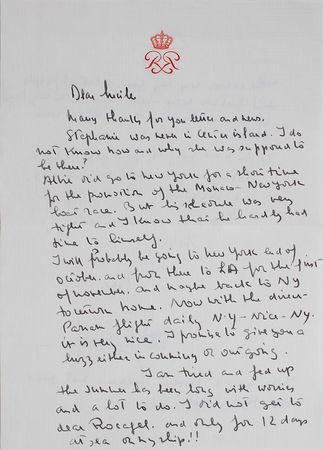 Dear
Many thanks for you letter and news.
Stephanie was never in island. I do
not know how and why she was supposed to
be there?
Albie did go to New York for a short time
for the promotion of the Monaco - New York
boat race. But his schedule was very
tight and I know that he hardly had
time to himself.
I will probably be going to New York end of
october. and from there to LA for the first
of november. and maybe back to NY
to return home. Now with the direct
Panam flight daily N-Y-Nice-NY.
it is very nice. I promise to give you a
buzz either in coming or out going.
I am tired and fed up
the summer has been long with worries
and a lot to do. I did not get to
dear Rocagel. and only for 12 days
at sea on my ship.!!